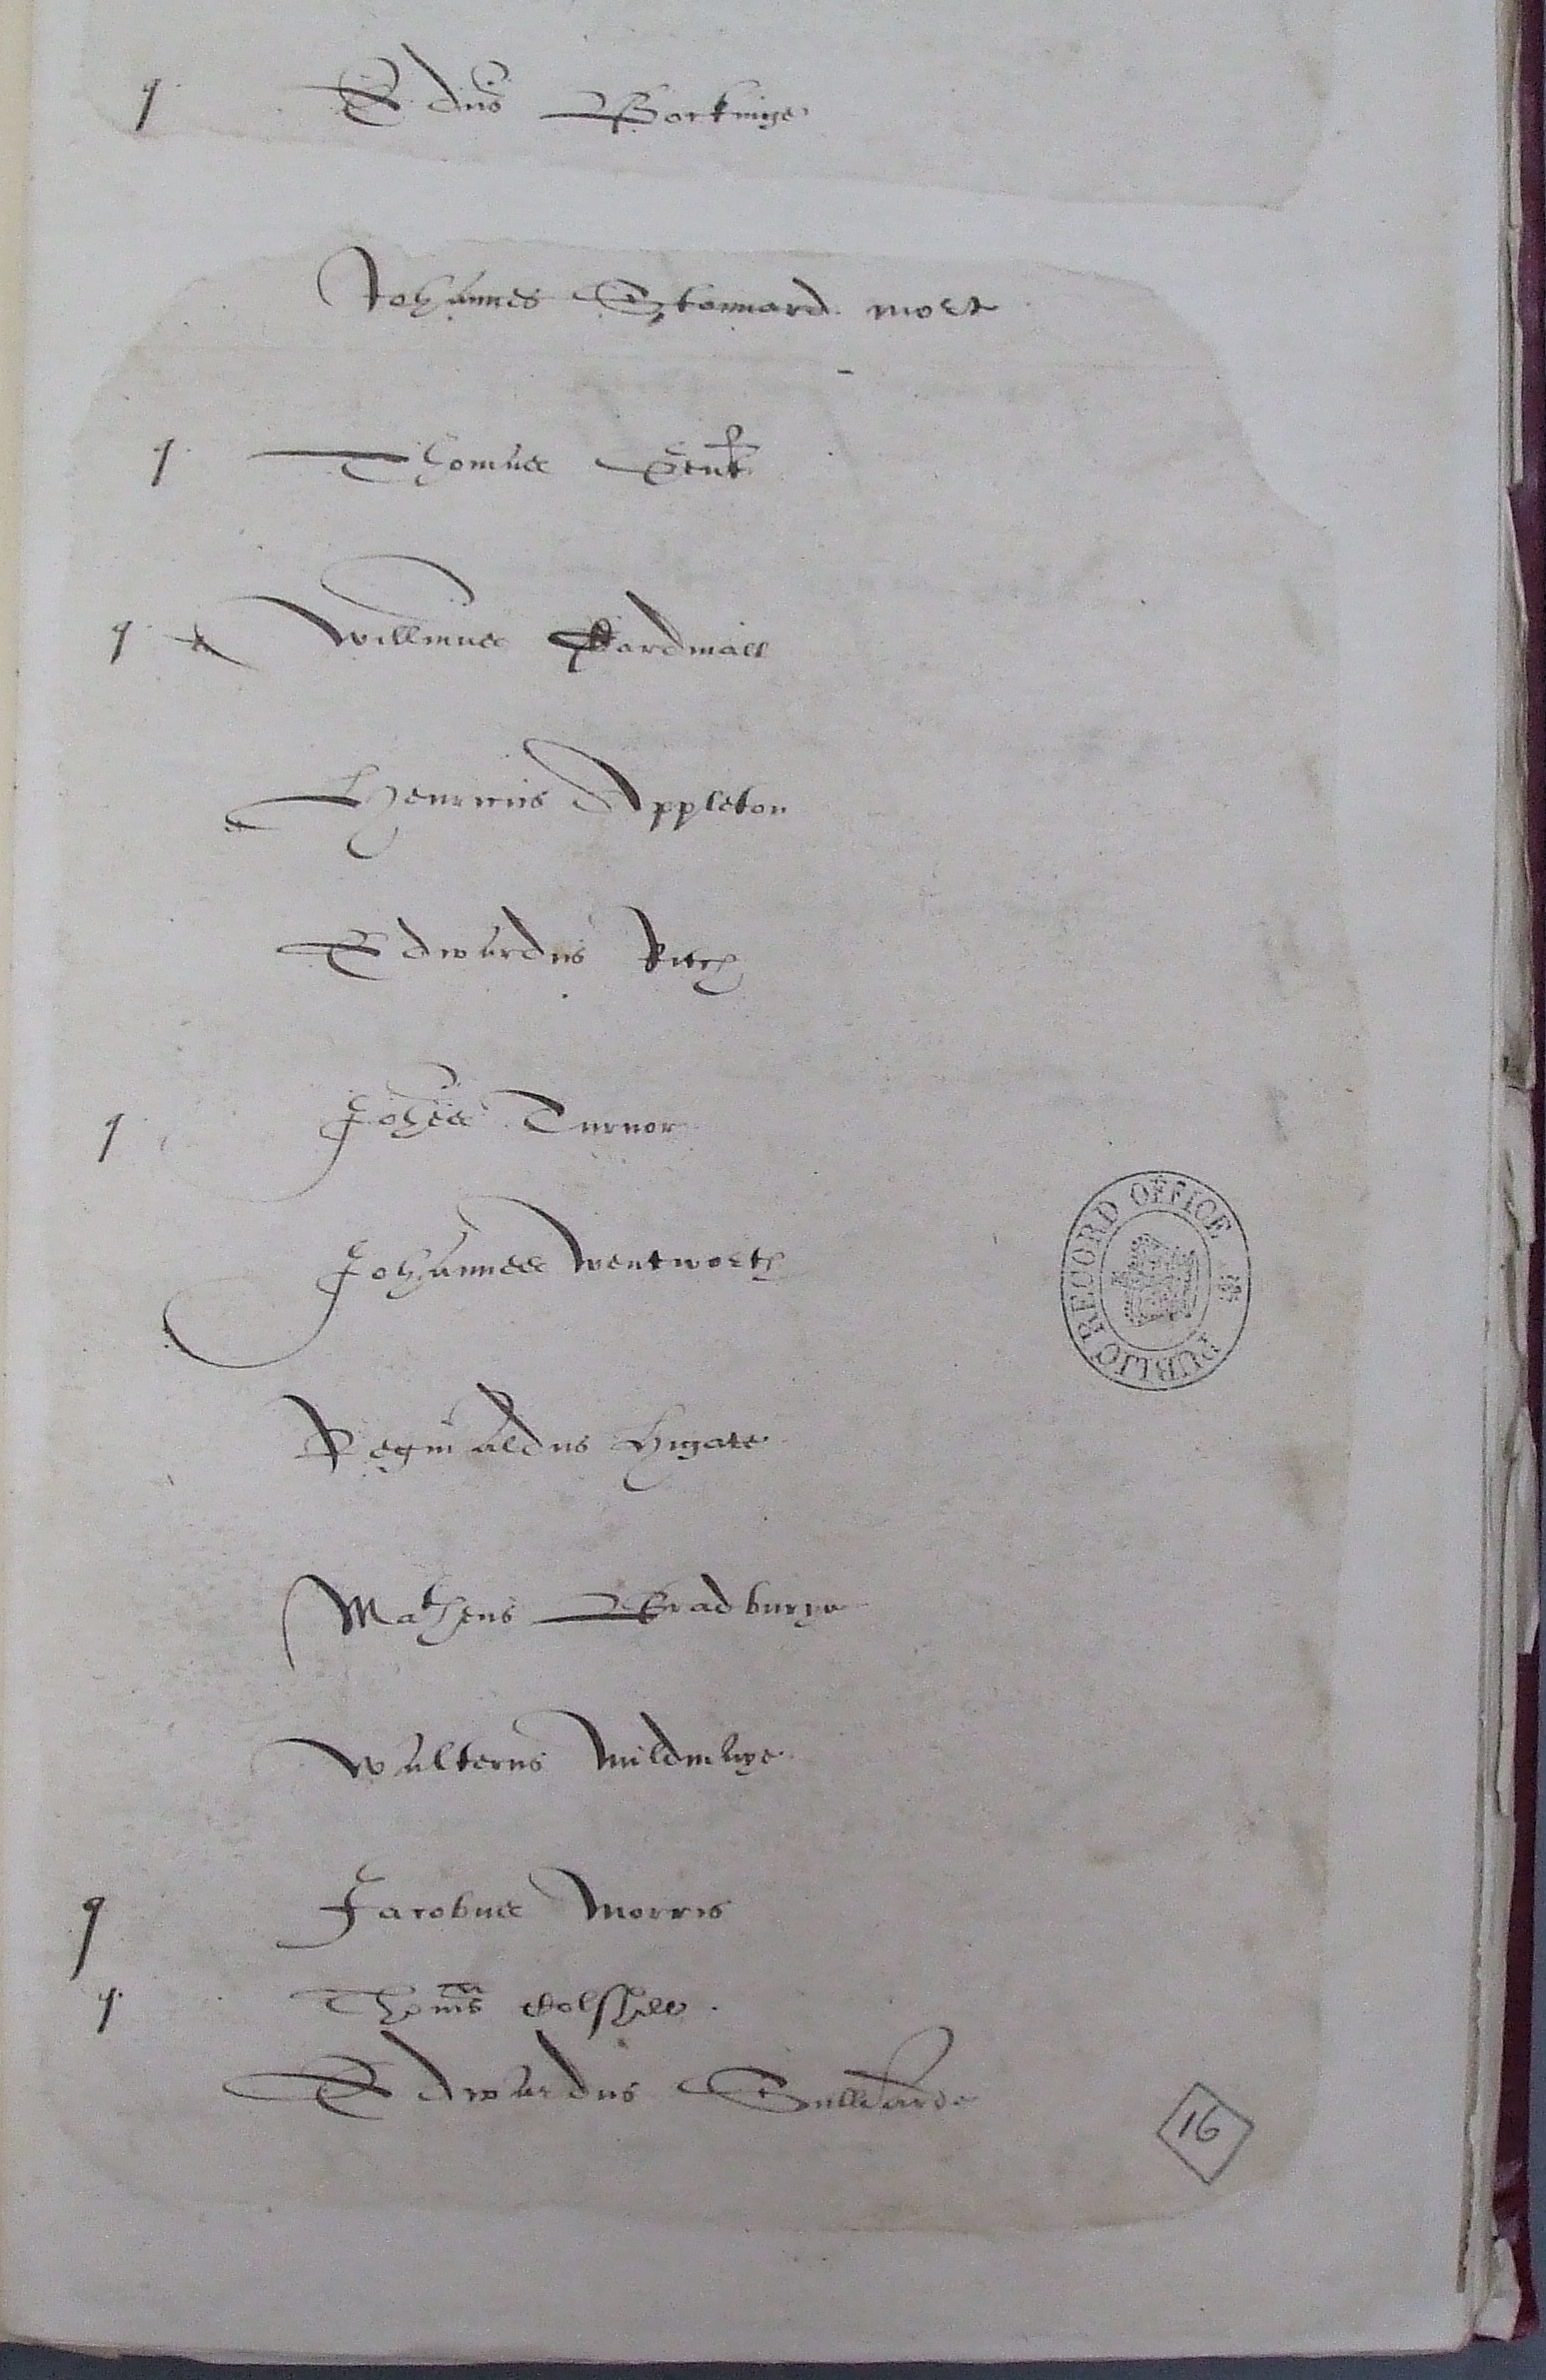 q Edūs Bockinge
Johannes Stonnard mort
q Thomas Gent
q Willmus Cardinall
Henricus Appleton
Edwardus Rich
q Johes Turnor
Johannes Wentworth
Reginaldus Higate
Matheus Bradburye
Walterus Mildmaye
q Jacobus Morris
q Thoms Colshill
Edwardus Sulliarde
PUBLIC RECORD OFFICE
16